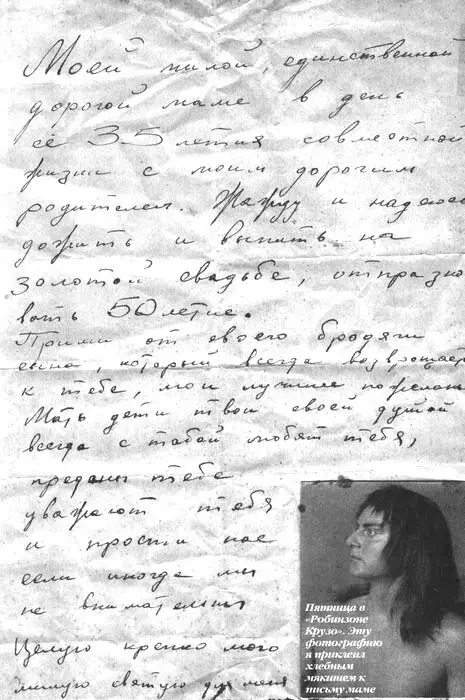 Моей милой, единственной
дорогой маме в день
её 35летия совместной
жизни с моим дорогим
родителем. Жажду и надеюсь
дожить и выпить на
золотой свадьбе, отпраздно
вать 50летие.
Прими от своего бродяги
сына, который всегда возвращает
к тебе, мои лучшие пожелань
Мать дети твои своей душой
всегда с тобой любят тебя,
преданы тебе
уважают тебя
и прости нас
если иногда мы
не внимательны
Целую крепко мою
милую святую для меня
Пятница в
«Робинзоне
Крузо». Эту
фотографию
я приклеил
хлебным
мякишем к
письму маме